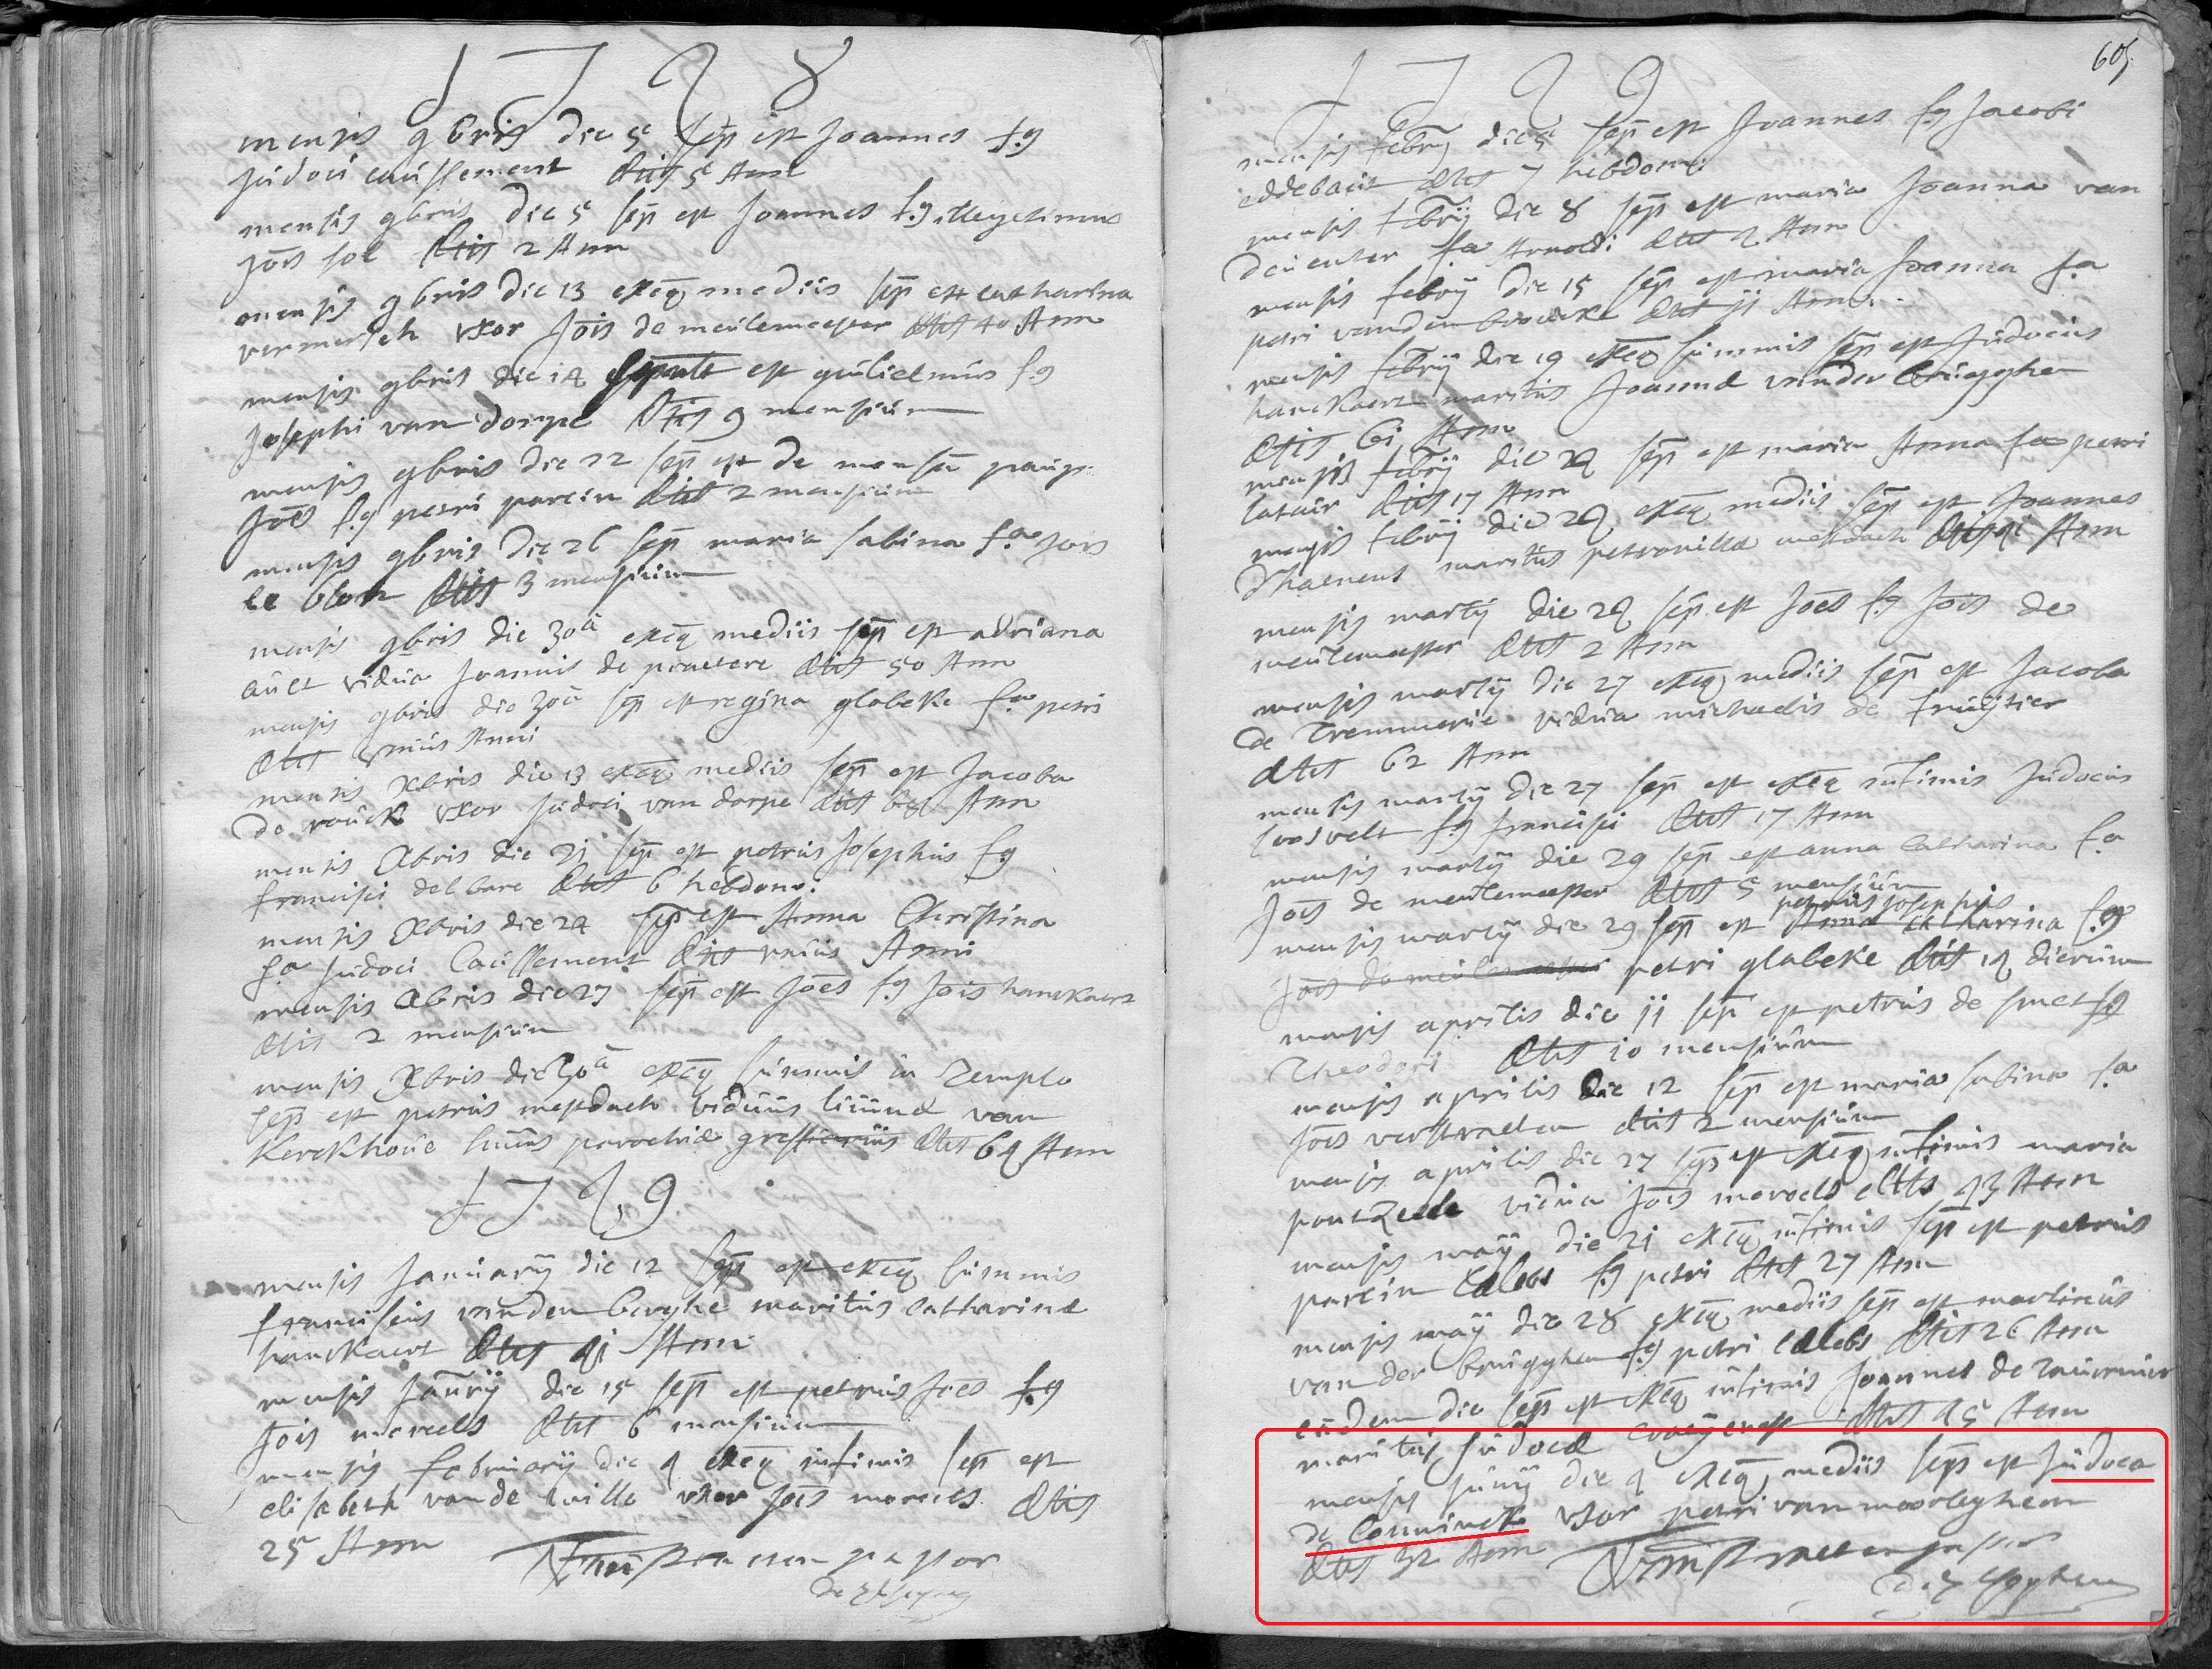 1728
mensis 9bris die 5 sep est Joannes f.9
Judoci caussement Ætis 5 Ann
mensis 9bris die 5 sep est Joannes f.9 illegitimus
Jois sol Ætis 2 Ann
mensis 9bris die 13 exeq mediis sep est catharina
vermersch vxor Jois de meulemeester Ætis 40 Ann
mensis 9bris die 14 sepult est guilielmus f.9
Josephi van dorpe Ætis 9 mensium
mensis 9bris die 22 sep est de mensa paup
Joes f.9 petri parein Ætis 2 mensium
mensis 9bris die 26 sep maria sabina f.a Jois
le blon Ætis 3 mensium
mensis 9bris die 30a exeq mediis sep est adriana
ault vidua Joannis de praetere Ætis 50 Ann
mensis 9bris die 30a sep est regina glabeke f.a petri
Ætis vnius Anni
mensis Xbris die 13 exeq mediis sep est Jacoba
de rouck vxor Judoci van dorpe Ætis Ann
mensis Xbris die 21 sep est petrus Josephus f.9
francisci delbare Ætis 6 hebdom:
mensis Xbris die 24 sep est Anna Christina
f.a Judoci Caussement Ætis vnius Anni
mensis Xbris die 27 sep est Joes f.9 Jois hanckaert
Ætis 2 mensium
mensis Xbris die 30a exeq summis in templo
sep est petrus mestdach viduus liuinæ van
kerckhoue huius parochiæ greffiarius Ætis 64 Ann
1729
mensis Januarÿ die 12 sep est exeq summis
franciscus vanden berghe maritus catharinæ
hanckaert Ætis 41 Ann
mensis Janrÿ die 15 sep est petrus Joes f.9
Jois moreels Ætis 6 mensium
mensis februarÿ die 4 exeq infimis sep est
elisabeth vande wille vxor Jois moreels Ætis
25 Ann
pastor
605
1729
mensis febrÿ die 5 sep est Joannes f.9 Jacobi
eddebaut Ætis 7 hebdom:
mensis febrÿ die 8 sep est maria Joanna van
deuenter f.a Arnoldi Ætis 2 Ann
mensis febrÿ die 15 sep est maria Joanna f.a
petri vanden broucke Ætis 11 Ann
mensis febrÿ die 19 exeq summis sep est Judocus
hanckaert maritus Joannæ vander brugghen
Ætis 61 Ann
mensis febrÿ die 24 sep est maria Anna f.a petri
latuir Ætis 17 Ann
mensis febrÿ die 24 exeq mediis sep est Joannes
Dhaenens maritus petronillæ mestdach Ætis 41 Ann
mensis martÿ die 24 sep est Joes f.9 Jois de
meulemeester Ætis 2 Ann
mensis martÿ die 27 exeq mediis sep est Jacoba
de Tremmerie vidua michaelis de fruijtier
Ætis 62 Ann
mensis martÿ die 27 sep est exeq infimis Judocus
loosvelt f.9 francisci Ætis 17 Ann
mensis martÿ die 29 sep est anna Catharina f.a
Jois de meulemeester Ætis 5 mensium
petrus Josephus
mensis martÿ die 29 sep est Anna Catharina f.9
Jois de meulemeester petri glabeke Ætis 14 dierum
mensis aprilis die 11 sep est petrus de smet f.9
Theodori Ætis 10 mensium
mensis aprilis die 12 sep est maria sabina f.a
Jois verstraeten Ætis 2 mensium
mensis aprilis die 27 sep est exeq infimis maria
vidua Jois moreels Ætis 43 Ann
mensis maÿ die 21 exeq infimis sep est petrus
parein Cælebs f.9 petri Ætis 27 Ann
mensis maÿ die 28 exeq mediis sep est martinus
van der brugghen f.9 petri cælebs Ætis 26 Ann
eadem die sep est exeq infimis Joannes de
maritus Judocæ Ætis 45 Ann
mensis Junÿ die 4 exeq mediis sep est Judoca
de Conninck vxor petri van moorleghem
Ætis 32 Ann
pastor